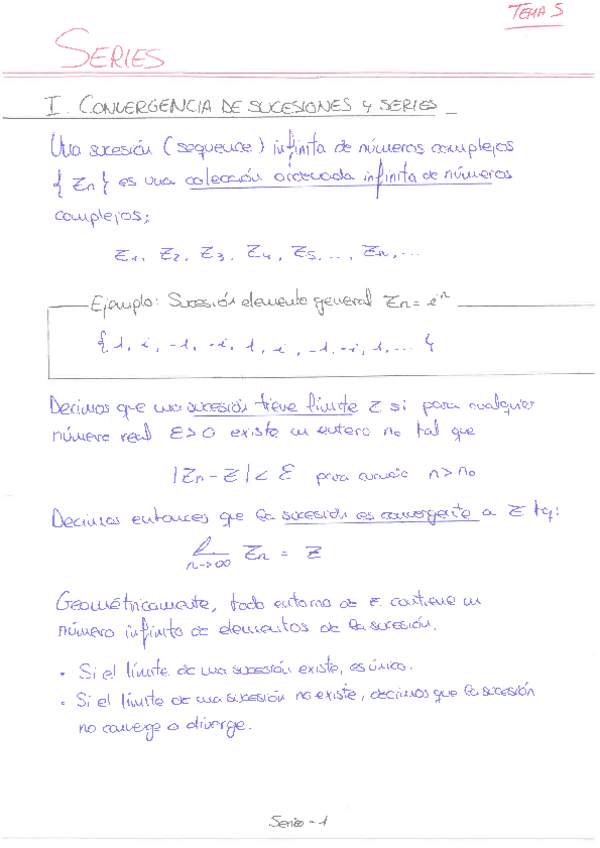 TEMA 5
SERIES
I. CONVERGENCIA DE SUCESIONES Y SERIES
Una sucesión (sequence) infinita de números complejos
{Zn} es una colección ordenada infinita de números
complejos;
Z1, Z2, Z3, Z4, Z5, ..., Zn, ...
Ejemplo: Sucesión elemento general Zn = i^n
{1, i, -1, -i, 1, i, -1, -i, 1, ... }
Decimos que una sucesión tiene límite Z si para cualquier
número real ε>0 existe un entero no tal que
|Zn - Z| < ε para n > no
Decimos entonces que la sucesión es convergente a Z tq:
n->∞ Zn = Z
Geométricamente, todo entorno de z contiene un
número infinito de elementos de la sucesión.
• Si el límite de una sucesión existe, es único.
• Si el límite de una sucesión no existe, decimos que la sucesión
no converge o diverge.
Series - 1